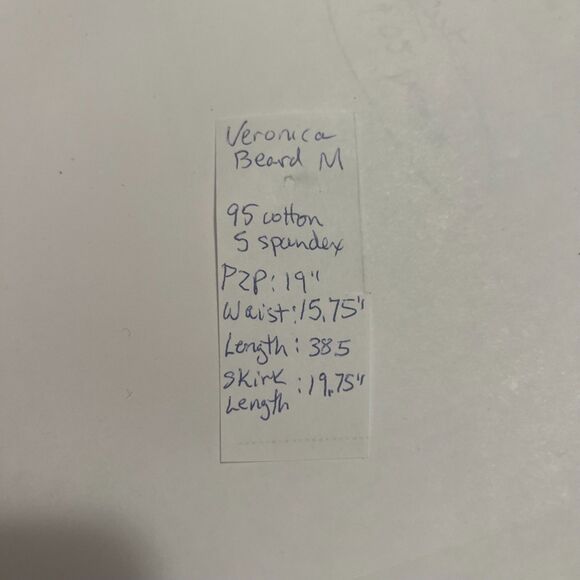 Veronica
Beard M
95 cotton
5 spandex
P2P: 19"
Waist: 15.75"
Length: 38.5
Skirk : 19.75"
Length